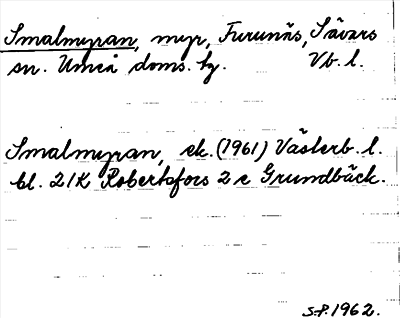 Smalmyran, myr, Furunäs, Sävars
sn. Umeå doms. hg. Vb. l.
Smalmyran, ek. (1961) Västerb. l.
bl. 21K Robertsfors 2 c Grundbäck.
S.P. 1962.